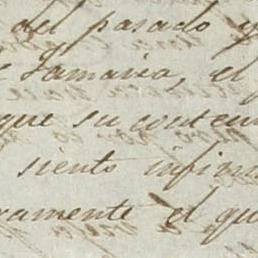 del pasado y
Jamaica, el
que su conten
siento infin
vamente el qu